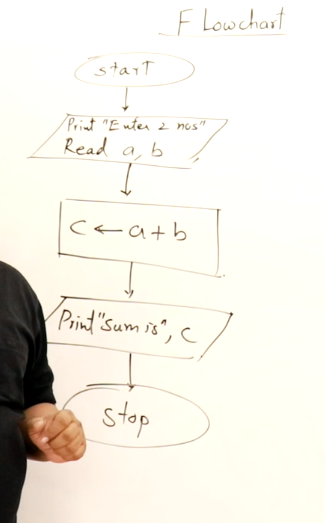 Flowchart
start
Print "Enter 2 nos"
Read a, b
C ← a + b
Print "Sum is", C
Stop